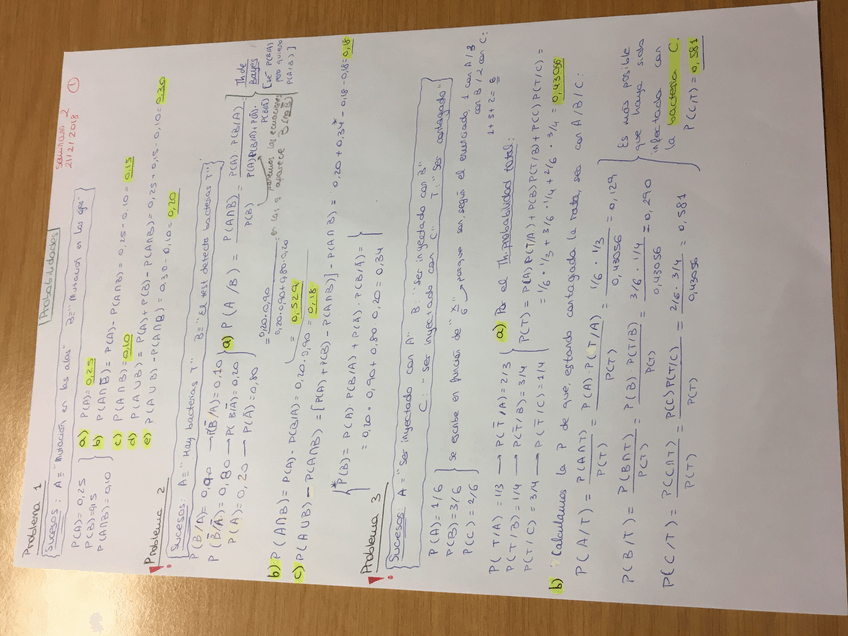 Probabilidades
Seminario 2
21/2/2018
1
Problema 1
Sucesos: A = "Mutación en las alas" B = "Mutación en los ojos"
P(A) = 0,25
P(B) = 0,15
P(A∩B) = 0,10
a) P(A) = 0,25
b) P(A∩B̄) = P(A) - P(A∩B) = 0,25 - 0,10 = 0,15
c) P(A∩B) = 0,10
d) P(A∪B) = P(A) + P(B) - P(A∩B) = 0,25 + 0,15 - 0,10 = 0,30
e) P(A∪B) - P(A∩B) = 0,30 - 0,10 = 0,20
Problema 2
Sucesos: A = "Hay bacterias T" B = "El test detecta bacterias T"
P(B/A) = 0,90 → P(B̄/A) = 0,10
P(B̄/Ā) = 0,80 → P(B/Ā) = 0,20
P(A) = 0,20 → P(Ā) = 0,80
a) P(A/B) = P(A∩B) / P(B) = P(A) · P(B/A) / P(A)·P(B/A) + P(Ā)·P(B/Ā)
Th de Bayes
= 0,20·0,90 / 0,20·0,90 + 0,80·0,20 = 0,529
b) P(A∩B) = P(A) · P(B/A) = 0,20 · 0,90 = 0,18
c) P(A∪B) - P(A∩B) = [P(A) + P(B) - P(A∩B)] - P(A∩B) = 0,20 + 0,34* - 0,18 - 0,18 = 0,18
* P(B) = P(A) P(B/A) + P(Ā) · P(B/Ā) =
= 0,20 · 0,90 + 0,80 · 0,20 = 0,34
Problema 3
Sucesos: A = "Ser inyectado con A" B: "Ser inyectado con B"
C: "Ser inyectado con C" T: "Ser contagiado"
P(A) = 1/6
P(B) = 3/6
P(C) = 2/6
Se escribe en función de "x/6" porque son, según el enunciado, 1 con A / 3 con B / 2 con C:
1 + 3 + 2 = 6
P(T/A) = 1/3 → P(T̄/A) = 2/3
P(T/B) = 1/4 → P(T̄/B) = 3/4
P(T/C) = 3/4 → P(T̄/C) = 1/4
a) Por el Th. probabilidad total:
P(T) = P(A) P(T/A) + P(B) P(T/B) + P(C) P(T/C) =
= 1/6 · 1/3 + 3/6 · 1/4 + 2/6 · 3/4 = 0,43056
b) Calculamos la P de que, estando contagiada la rata, sea con A/B/C:
P(A/T) = P(A∩T) / P(T) = P(A) · P(T/A) / P(T) = 1/6 · 1/3 / 0,43056 = 0,129
P(B/T) = P(B∩T) / P(T) = P(B) · P(T/B) / P(T) = 3/6 · 1/4 / 0,43056 = 0,290
P(C/T) = P(C∩T) / P(T) = P(C) P(T/C) / P(T) = 2/6 · 3/4 / 0,43056 = 0,581
Es más posible
que haya sido
infectada con
la bacteria C.
P(C/T) = 0,581